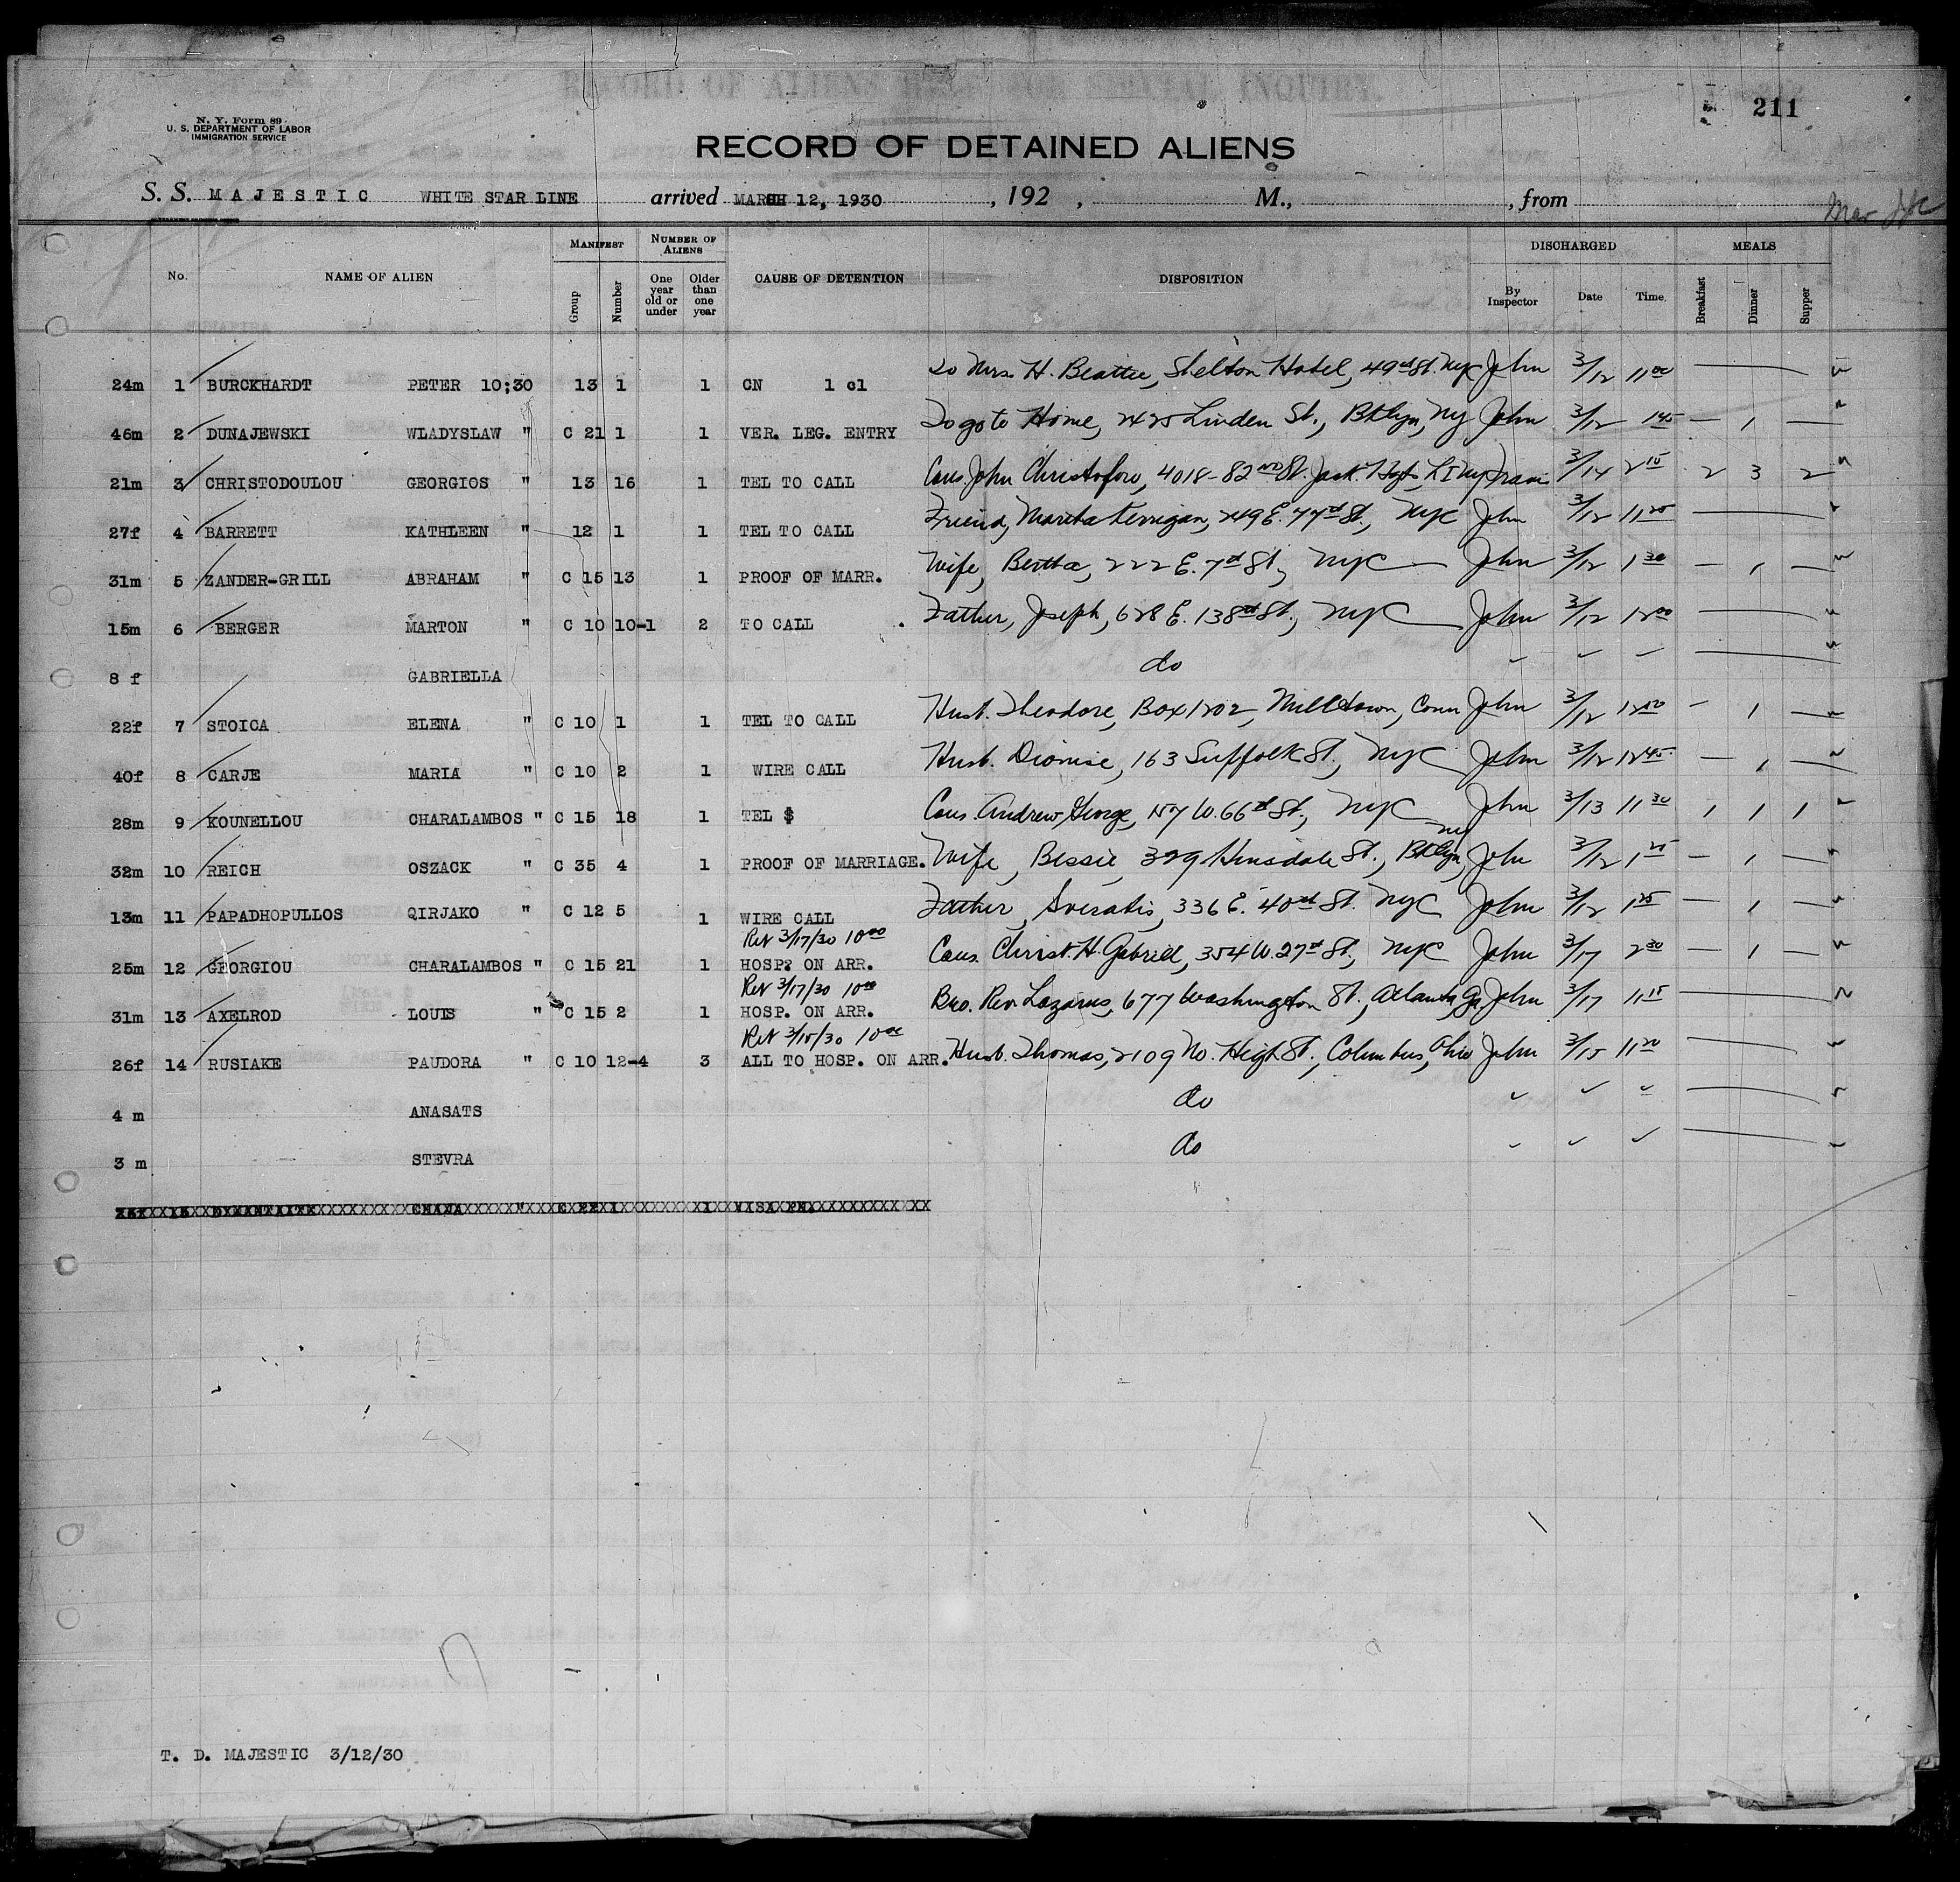 211
N. Y. Form 89
U. S. DEPARTMENT OF LABOR
IMMIGRATION SERVICE
RECORD OF DETAINED ALIENS
S. S. MAJESTIC WHITE STAR LINE arrived MARCH 12, 1930, 192 , M., , from
No. NAME OF ALIEN MANIFEST Group Number NUMBER OF ALIENS One year old or under Older than one year CAUSE OF DETENTION DISPOSITION DISCHARGED By Inspector Date Time. MEALS Breakfast Dinner Supper
24m 1 BURCKHARDT PETER 10;30 13 1 1 CN 1 cl To Mrs. H. Beattie, Shelton Hotel, 49th St. NYC John 3/12 11 00
46m 2 DUNAJEWSKI WLADYSLAW " C 21 1 1 VER. LEG. ENTRY To go to Home, 2425 Linden St., Bklyn, NY John 3/12 1 45 — 1 —
21m 3 CHRISTODOULOU GEORGIOS " 13 16 1 TEL TO CALL Cous. John Christoforo, 4018-82ND St. Jack. Hgts LI NY 3/14 2 15 2 3 2
27f 4 BARRETT KATHLEEN " 12 1 1 TEL TO CALL Friend, Kerrigan, 249 E. 77th St., NYC John 3/12 11 25
31m 5 ZANDER-GRILL ABRAHAM " C 15 13 1 PROOF OF MARR. Wife, Bertha, 222 E. 7th St., NYC John 3/12 1 30 — 1 —
15m 6 BERGER MARTON " C 10 10-1 2 TO CALL Father, Joseph, 628 E. 138th St., NYC John 3/12 12 00
8 f GABRIELLA do
22f 7 STOICA ELENA " C 10 1 1 TEL TO CALL Husb. Theodore, Box 1202, Milltown, Conn John 3/12 12 00 — 1 —
40f 8 CARJE MARIA " C 10 2 1 WIRE CALL Husb. Dionise, 163 Suffolk St., NYC John 3/12 12 45 — 1 —
28m 9 KOUNELLOU CHARALAMBOS " C 15 18 1 TEL $ Cous. Andrew George, 157 W. 66th St., NYC John 3/13 11 30 1 1 1
32m 10 REICH OSZACK " C 35 4 1 PROOF OF MARRIAGE. Wife, Bessie, 329 Hinsdale St., Bklyn, NY John 3/12 1 25 — 1 —
13m 11 PAPADHOPULLOS QIRJAKO " C 12 5 1 WIRE CALL Father, 336 E. 40th St. NYC John 3/12 1 25 — 1 —
Ret 3/17/30 10 00
25m 12 GEORGIOU CHARALAMBOS " C 15 21 1 HOSP. ON ARR. Cous. Christ. H. Gabriel, 354 W. 27th St., NYC John 3/17 2 30 — 1 —
Ret 3/17/30 10 00
31m 13 AXELROD LOUIS " C 15 2 1 HOSP. ON ARR. Bro. Rev. Lazarus, 677 Washington St., Atlanta, Ga. John 3/17 11 15
Ret 3/15/30 10 00
26f 14 RUSIAKE PAUDORA " C 10 12-4 3 ALL TO HOSP. ON ARR. Husb. Thomas, 2109 No. High St., Columbus, Ohio John 3/15 11 20
4 m ANASATS do
3 m STEVRA do
15 CHANA " C 22 1 1 VISA PH.
T. D. MAJESTIC 3/12/30